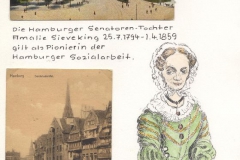 Die Hamburger Senatoren-Tochter
Amalie Sieveking 25.7.1794-1.4.1859
gilt als Pionierin der
Hamburger Sozialarbeit.